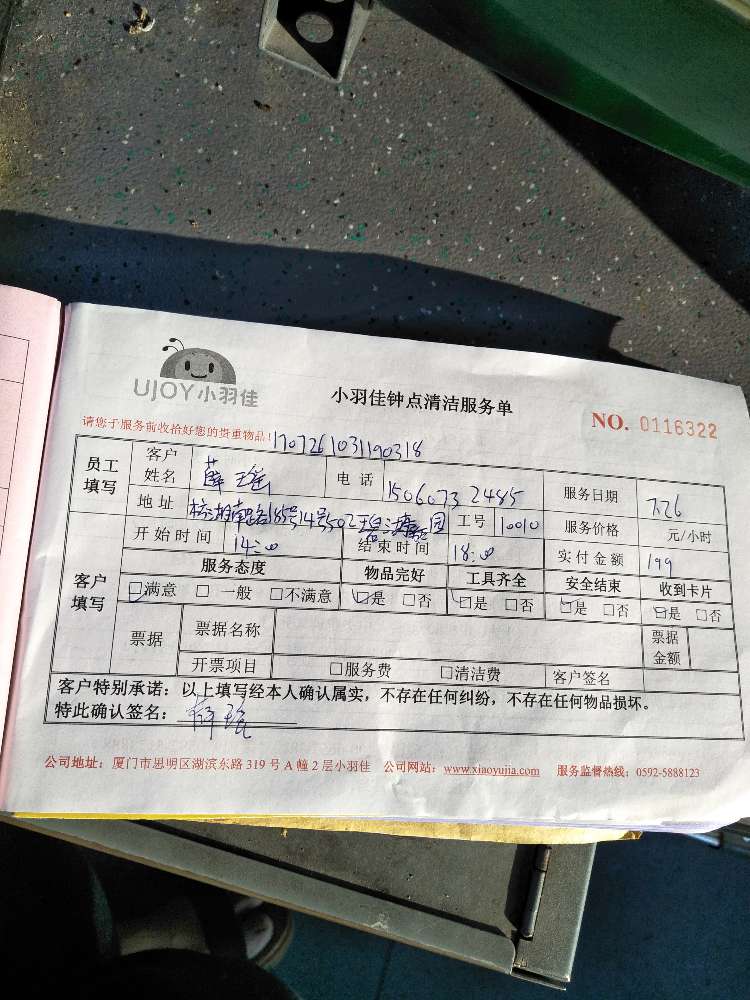 UJOY小羽佳
小羽佳钟点清洁服务单
NO. 0116322
请您于服务前收拾好您的贵重物品!
170726103190318
员工填写 客户姓名 薛瑶 电话 15060732485 服务日期 7.26
地址 185号14号502 工号 10010 服务价格 元/小时
客户填写 开始时间 14:00 结束时间 18:00 实付金额 199
服务态度 物品完好 工具齐全 安全结束 收到卡片
☑满意 □一般 □不满意 ☑是 □否 ☑是 □否 ☑是 □否 ☑是 □否
票据 票据名称 票据金额
开票项目 □服务费 □清洁费 客户签名
客户特别承诺：以上填写经本人确认属实，不存在任何纠纷，不存在任何物品损坏。
特此确认签名：薛瑶
公司地址：厦门市思明区湖滨东路319号A幢2层小羽佳 公司网站：www.xiaoyujia.com 服务监督热线：0592-5888123